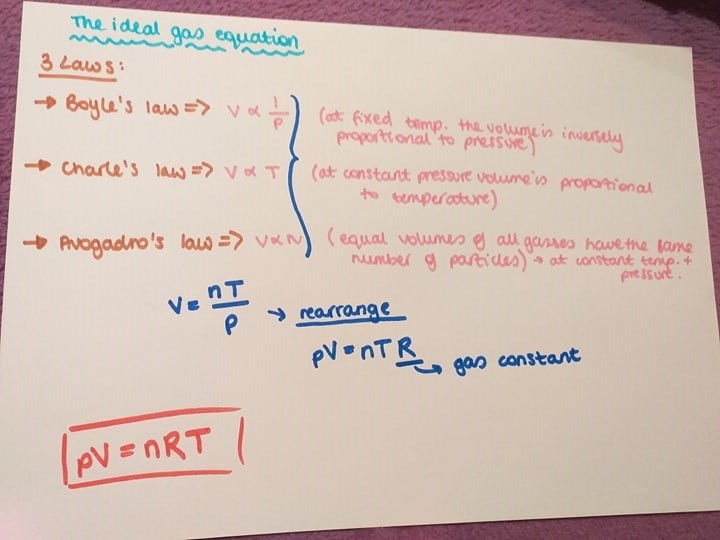 The ideal gas equation
3 Laws:
→ Boyle's law => V ∝ 1/P (at fixed temp. the volume is inversely
proportional to pressure)
→ Charle's law => V ∝ T (at constant pressure volume is proportional
to temperature)
→ Avogadro's law => V ∝ N (equal volumes of all gasses have the same
number of particles) → at constant temp. +
pressure.
V = nT/P → rearrange
pV = nTR → gas constant
pV = nRT